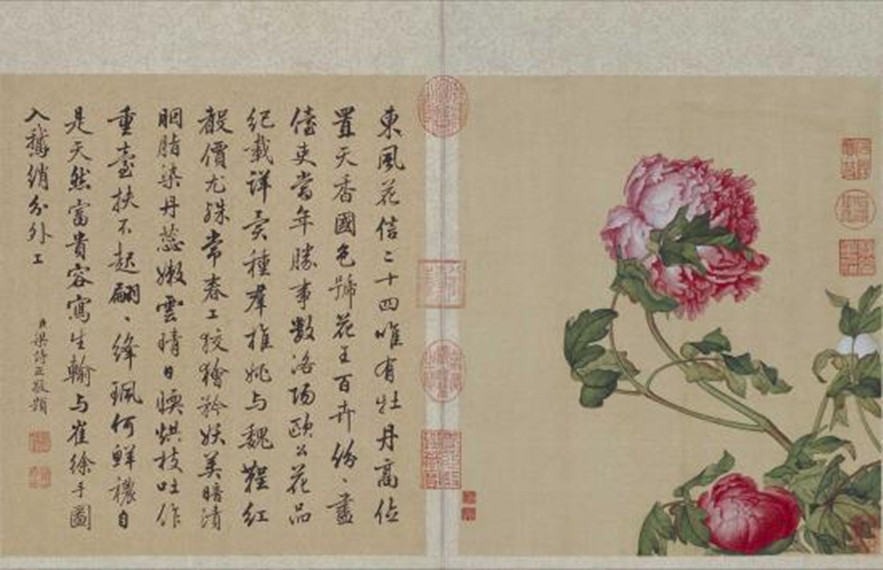 東風花信二十四唯有牡丹高位
置天香國色號花王百卉紛〻盡
儓吏當年勝事數洛陽歐公花品
紀載詳異種羣推姚與魏鞓紅
聲價尤殊常春工狡獪矜妖美暗漬
胭脂染丹蕊嫩雲晴日暖烘枝吐作
重臺扶不起翩〻絳珮何鮮穠自
是天然富貴容寫生輸与崔徐手圖
入鵝綃分外工
臣梁詩正敬題